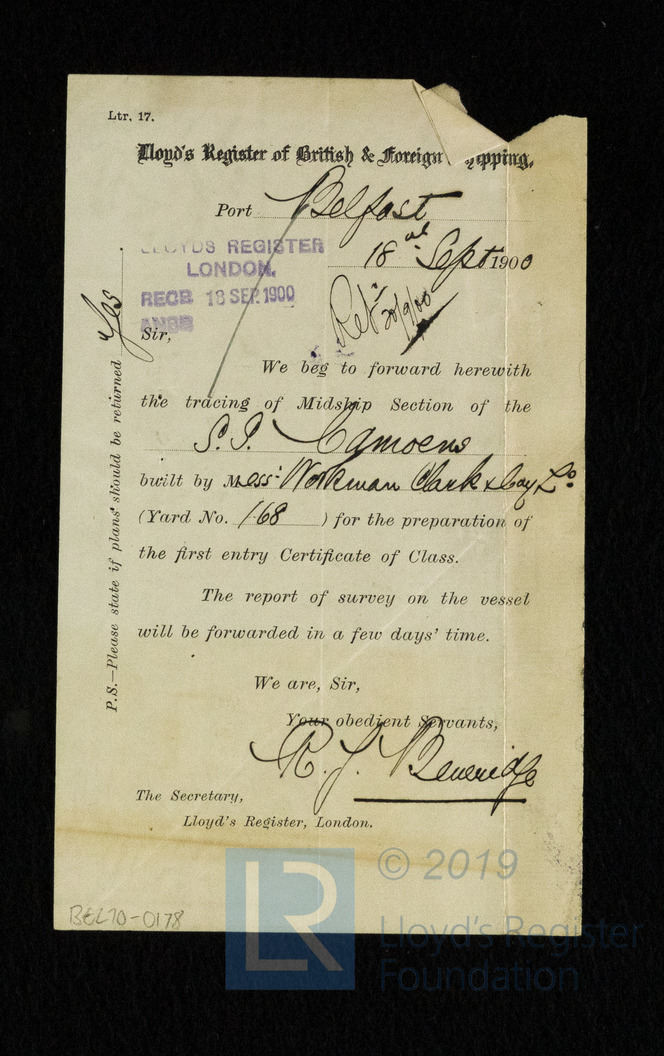 Ltr. 17.
Lloyd's Register of British & Foreign Shipping,
Port Belfast
18th Sept 1900
LLOYDS REGISTER
LONDON.
RECD 18 SEP. 1900
ANSD
Retd 20/9/00
Sir,
We beg to forward herewith
the tracing of Midship Section of the
S.S. Camoens
built by Messrs Workman Clark & Coy Ld
(Yard No. 168 ) for the preparation of
the first entry Certificate of Class.
The report of survey on the vessel
will be forwarded in a few days' time.
We are, Sir,
Your obedient Servants,
R. J. Beveridge
The Secretary,
Lloyd's Register, London.
P.S.—Please state if plans should be returned Yes
BEL70-0178
LR
© 2019
Lloyd's Register
Foundation